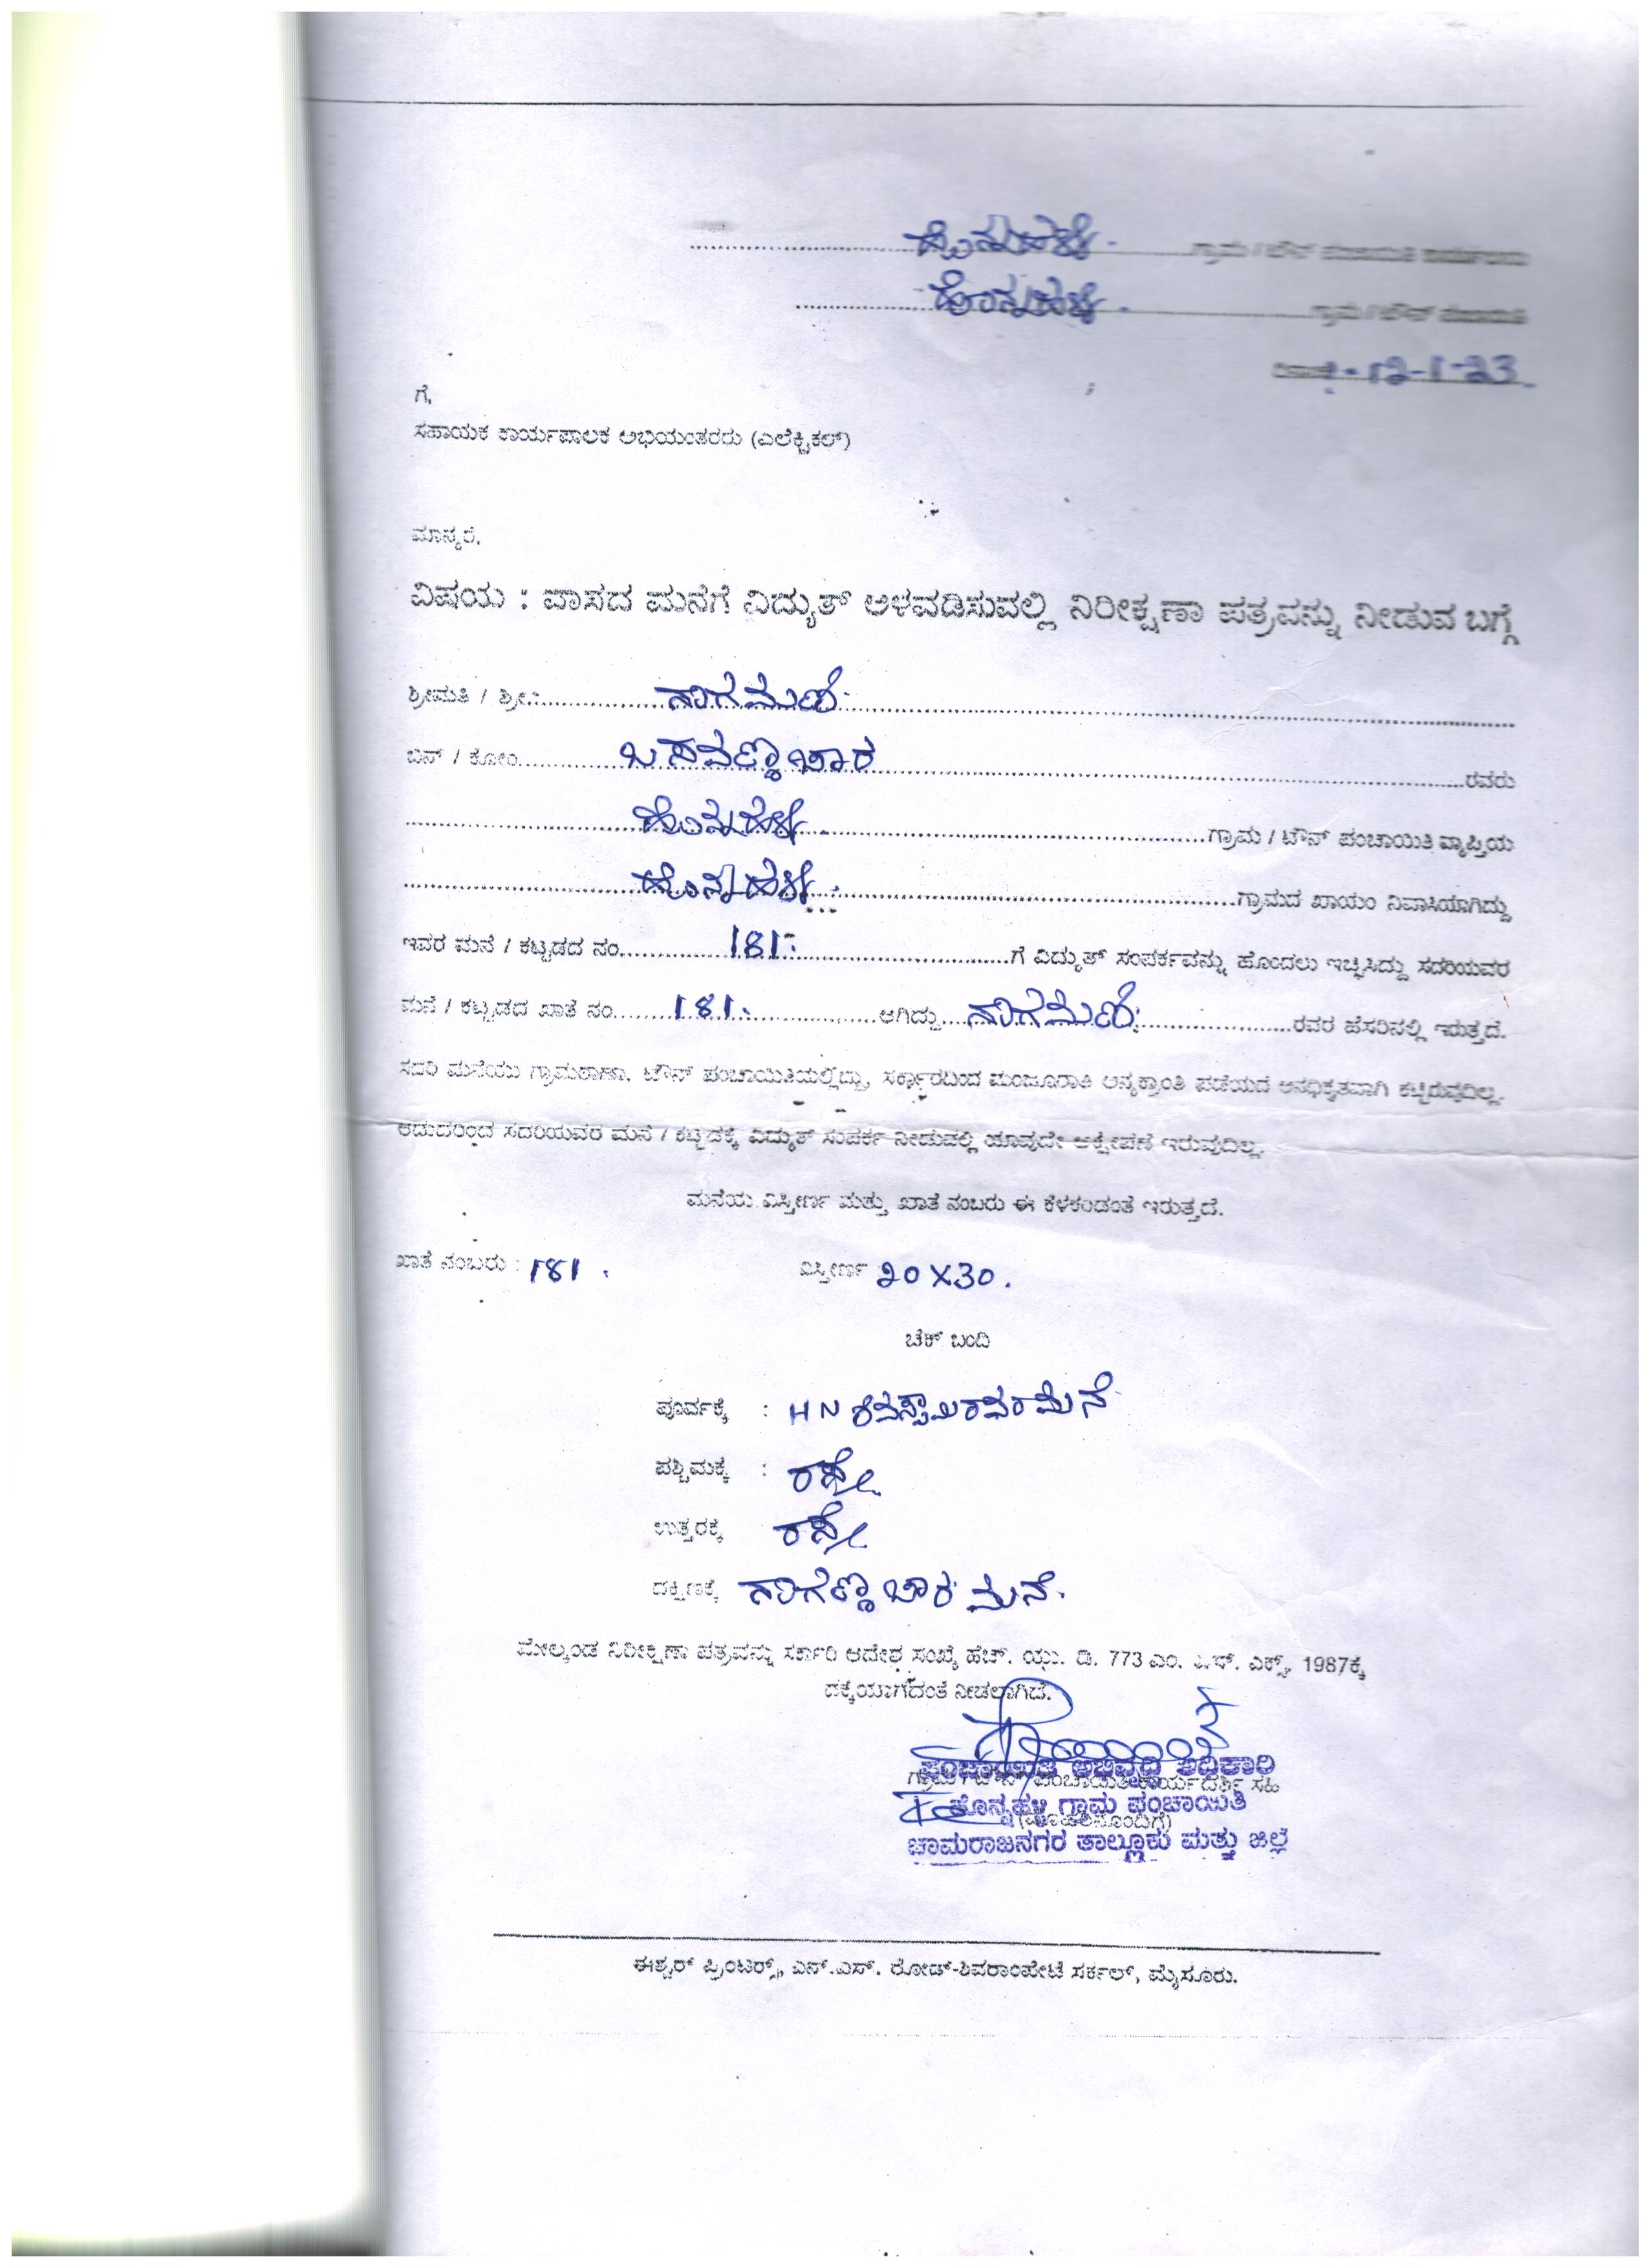 ಹೊನ್ನಹಳ್ಳಿ ಗ್ರಾಮ / ಟೌನ್ ಪಂಚಾಯಿತಿ ಕಾರ್ಯಾಲಯ
ಹೊನ್ನಹಳ್ಳಿ ಗ್ರಾಮ / ಟೌನ್ ಪಂಚಾಯಿತಿ
ದಿನಾಂಕ : 12-1-23
ಗೆ,
ಸಹಾಯಕ ಕಾರ್ಯಪಾಲಕ ಅಭಿಯಂತರರು (ಎಲೆಕ್ಟ್ರಿಕಲ್)
ಮಾನ್ಯರೆ,
ವಿಷಯ : ವಾಸದ ಮನೆಗೆ ವಿದ್ಯುತ್ ಅಳವಡಿಸುವಲ್ಲಿ ನಿರೀಕ್ಷಣಾ ಪತ್ರವನ್ನು ನೀಡುವ ಬಗ್ಗೆ
ಶ್ರೀಮತಿ / ಶ್ರೀ: ನಾಗಮಣಿ
ಬಿನ್ / ಕೋಂ ಬಸವಣ್ಣಾಚಾರಿ ರವರು
ಹೊನ್ನಹಳ್ಳಿ ಗ್ರಾಮ / ಟೌನ್ ಪಂಚಾಯಿತಿ ವ್ಯಾಪ್ತಿಯ
ಹೊನ್ನಹಳ್ಳಿ ಗ್ರಾಮದ ಖಾಯಂ ನಿವಾಸಿಯಾಗಿದ್ದು
ಇವರ ಮನೆ / ಕಟ್ಟಡದ ನಂ. 181 ಗೆ ವಿದ್ಯುತ್ ಸಂಪರ್ಕವನ್ನು ಹೊಂದಲು ಇಚ್ಛಿಸಿದ್ದು ಸದರಿಯವರ
ಮನೆ / ಕಟ್ಟಡದ ಖಾತೆ ನಂ. 181. ಆಗಿದ್ದು ನಾಗಮಣಿ ರವರ ಹೆಸರಿನಲ್ಲಿ ಇರುತ್ತದೆ.
ಸದರಿ ಮನೆಯು ಗ್ರಾಮಠಾಣಾ, ಟೌನ್ ಪಂಚಾಯಿತಿಯಲ್ಲಿದ್ದು, ಸರ್ಕಾರದಿಂದ ಮಂಜೂರಾತಿ ಅನ್ಯಕ್ರಾಂತಿ ಪಡೆಯದೆ ಅನಧಿಕೃತವಾಗಿ ಕಟ್ಟಿರುವುದಿಲ್ಲ.
ಆದುದರಿಂದ ಸದರಿಯವರ ಮನೆ / ಕಟ್ಟಡಕ್ಕೆ ವಿದ್ಯುತ್ ಸಂಪರ್ಕ ನೀಡುವಲ್ಲಿ ಯಾವುದೇ ಆಕ್ಷೇಪಣೆ ಇರುವುದಿಲ್ಲ.
ಮನೆಯ ವಿಸ್ತೀರ್ಣ ಮತ್ತು ಖಾತೆ ನಂಬರು ಈ ಕೆಳಕಂಡಂತೆ ಇರುತ್ತದೆ.
ಖಾತೆ ನಂಬರು : 181. ವಿಸ್ತೀರ್ಣ 20 X 30.
ಚೆಕ್ ಬಂದಿ
ಪೂರ್ವಕ್ಕೆ : H N ಶಿವಸ್ವಾಮಿರವರ ಮನೆ
ಪಶ್ಚಿಮಕ್ಕೆ : ರಸ್ತೆ
ಉತ್ತರಕ್ಕೆ ರಸ್ತೆ
ದಕ್ಷಿಣಕ್ಕೆ ನಾಗಣ್ಣಚಾರಿ ಮನೆ.
ಮೇಲ್ಕಂಡ ನಿರೀಕ್ಷಣಾ ಪತ್ರವನ್ನು ಸರ್ಕಾರಿ ಆದೇಶ ಸಂಖ್ಯೆ ಹೆಚ್. ಯು. ಡಿ. 773 ಎಂ. ಎಕ್ಸ್, 1987ಕ್ಕೆ
ಧಕ್ಕೆಯಾಗದಂತೆ ನೀಡಲಾಗಿದೆ.
ಪಂಚಾಯಿತಿ ಅಭಿವೃದ್ಧಿ ಅಧಿಕಾರಿ
ಗ್ರಾಮ / ಟೌನ್ ಪಂಚಾಯಿತಿ ಕಾರ್ಯದರ್ಶಿ ಸಹಿ
ಹೊನ್ನಹಳ್ಳಿ ಗ್ರಾಮ ಪಂಚಾಯಿತಿ
(ಮೊಹರಿನೊಂದಿಗೆ)
ಚಾಮರಾಜನಗರ ತಾಲ್ಲೂಕು ಮತ್ತು ಜಿಲ್ಲೆ
ಈಶ್ವರ್ ಪ್ರಿಂಟರ್ಸ್, ಎನ್.ಎಸ್. ರೋಡ್-ಶಿವರಾಂಪೇಟೆ ಸರ್ಕಲ್, ಮೈಸೂರು.